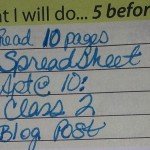 at I will do... 5 before
Read 10 pages
SpreadSheet
Apt@ 10:
Class 2
Blog Post